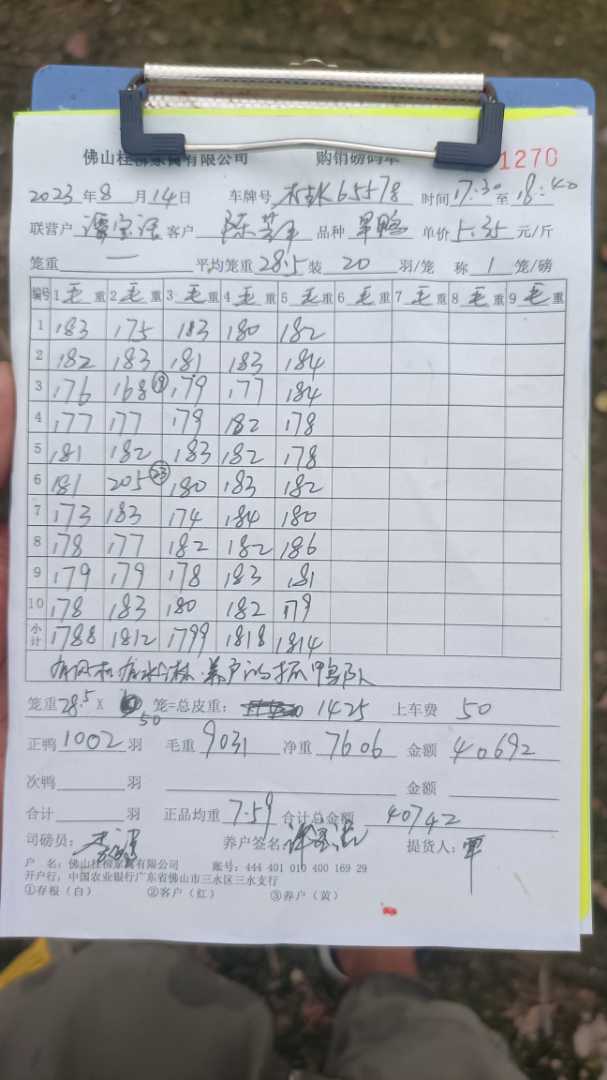 佛山桂柳家禽有限公司 购销磅码单 1270
2023年8月14日 车牌号 65578 时间17:30至18:40
联营户 客户 陈 品种 单价5.35元/斤
笼重 一 平均笼重28.5装20羽/笼 称1笼/磅
编号 1毛重 2毛重 3毛重 4毛重 5毛重 6毛重 7毛重 8毛重 9毛重
1 183 175 183 180 182
2 182 183 181 183 184
3 176 168 ⑲ 179 177 184
4 177 177 179 182 178
5 181 182 183 182 178
6 181 205 ㉓ 180 183 182
7 173 183 174 184 180
8 178 177 182 182 186
9 179 179 178 183 181
10 178 183 180 182 179
小计 1788 1812 1799 1818 1814
笼重28.5 X 50 笼=总皮重: 1425 上车费 50
正鸭1002羽 毛重9031 净重7606 金额40692
次鸭 羽 金额
合计 羽 正品均重7.59 合计总金额 40742
司磅员: 养户签名: 提货人:
户 名:佛山桂柳家禽有限公司 账号:444 401 010 400 169 29
开户行:中国农业银行广东省佛山市三水区三水支行
①存根(白) ②客户(红) ③养户(黄)